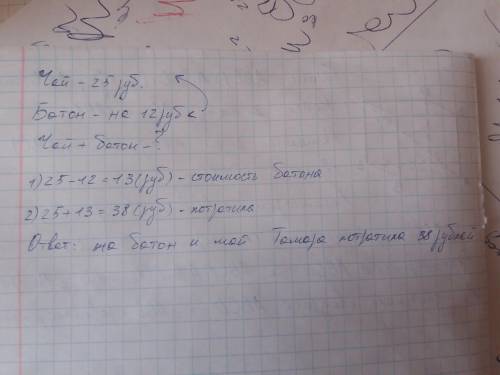 Чай - 25 руб.
Батон - на 12 руб <
Чай + батон - ?
1) 25 - 12 = 13 (руб) - стоимость батона
2) 25 + 13 = 38 (руб) - потратила
Ответ: на батон и чай Тамара потратила 38 рублей